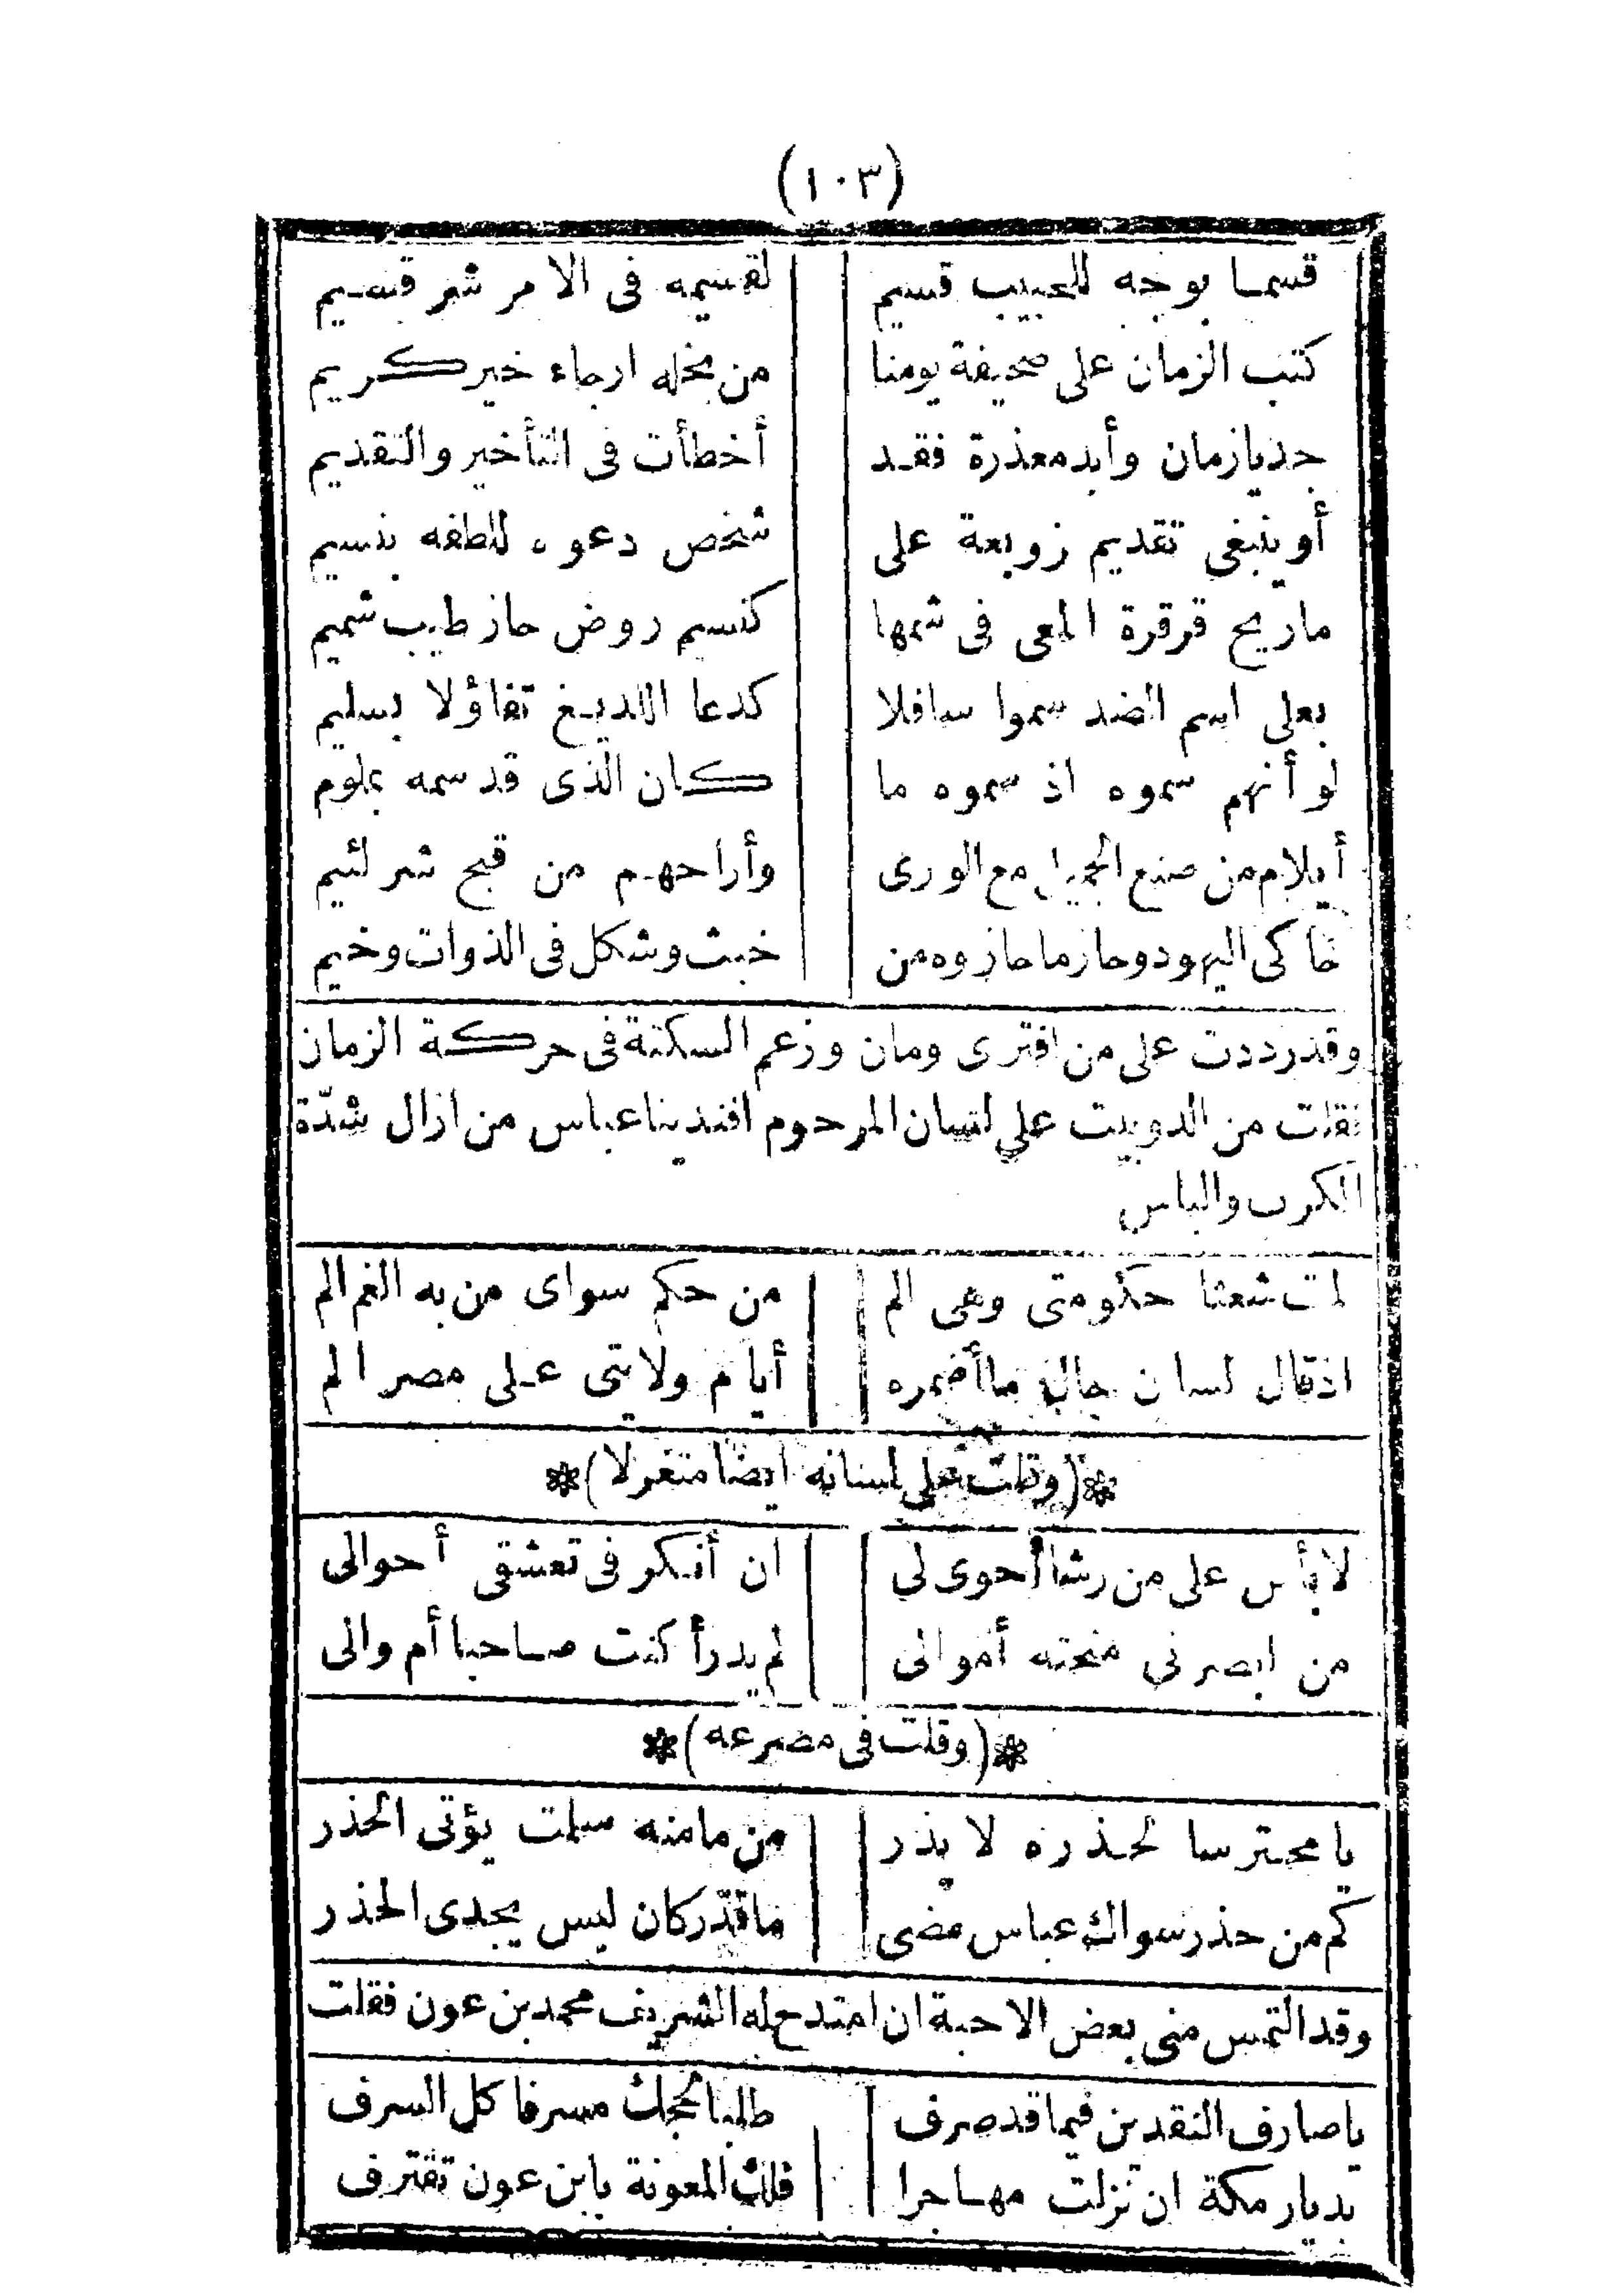 (١٠٣)
قسما بوجه للحبيب قسيم لقسيمه فى الامر شر قسيم
كتب الزمان على صحيفة يومنا من بخله ارجاء خير كريم
جد يازمان وأبد معذرة فقد أخطأت فى التأخير والتقديم
أو ينبغى تقديم زوبعة على شخص دعوه للطفه بنسيم
ماريح قرقرة المعى فى شمها كنسيم روض حاز طيب شميم
بعلى اسم الضد سموا سافلا كدعا اللديغ تفاؤلا بسليم
لو أنهم سموه اذ سموه ما كان الذى قد سمه بملوم
أيلام من صنع الجميل مع الورى وأراحهم من قبح شر لئيم
حاكى اليهود وحاز ما حازوه من خبث وشكل فى الذوات وخيم
وقد رددت على من افترى ومان وزعم السكتة فى حركة الزمان
فقلت من الدوبيت على لسان المرحوم افندينا عباس من ازال شدّة
الكرب والباس
لمت شعثا حكومتى وهى الم من حكم سواى من به الغم الم
اذ قال لسان حالة ما أضمره أيام ولايتى على مصر الم
*(وقلت على لسانه ايضا متغزلا)*
لا بأس على من رشا أحوى لى ان أنكر فى تعشقى أحوالى
من ابصرنى منحته أموالى لم يدر أكنت صاحبا أم والى
*(وقلت فى مصرعه)*
يا محترسا لحذره لا يذر من مامنه سلمت يؤتى الحذر
كم من حذر سواك عباس مضى ما قدّر كان ليس يجدى الحذر
وقد التمس منى بعض الاحبة ان امتدح له الشريف محمد بن عون فقلت
ياصارف النقدين فيما قد صرف طلبا لحجك مسرفا كل السرف
بديار مكة ان نزلت مهاجرا فلك المعونة يابن عون تقترف